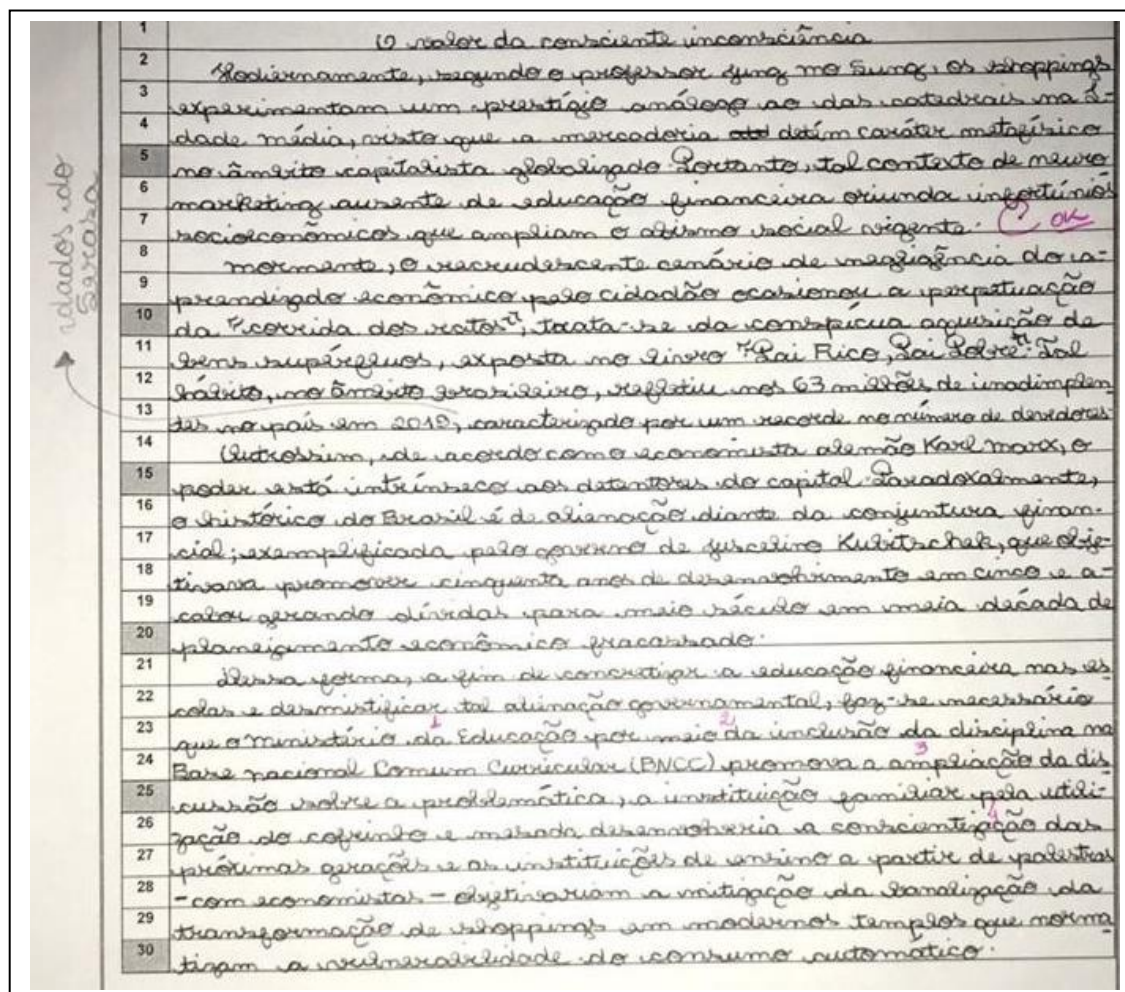 1 O valor da consciente inconsciência
2 Hodiernamente, segundo o professor Jung mo Sung, os shoppings
3 experimentam um prestígio análogo ao das catedrais na I-
4 dade média, visto que a mercadoria detém caráter metafísico
5 no âmbito capitalista globalizado. Portanto, tal contexto de neuro
6 marketing ausente de educação financeira oriunda infortúnios
7 socioeconômicos que ampliam o abismo social vigente. OK
8 mormente, o recrudescente cenário de negligência do a-
9 prendizado econômico pelo cidadão ocasionou a perpetuação
10 da "corrida dos ratos", trata-se da conspícua aquisição de
11 bens supérfluos, exposta no livro "Pai Rico, Pai Pobre". Tal
12 hábito, no âmbito brasileiro, refletiu nos 63 milhões de inadimplen
13 tes no país em 2019, caracterizado por um recorde no número de devedores.
14 Outrossim, de acordo com o economista alemão Karl marx, o
15 poder está intrínseco aos detentores do capital. Paradoxalmente,
16 o histórico do Brasil é de alienação diante da conjuntura finan-
17 cial; exemplificada pelo governo de Juscelino Kubitschek, que obje-
18 tivava promover cinquenta anos de desenvolvimento em cinco e a-
19 cabou gerando dívidas para meio século em meia década de
20 planejamento econômico fracassado.
21 Dessa forma, a fim de concretizar a educação financeira nas es
22 colas e desmistificar tal alienação governamental, faz-se necessário
1 2
23 que o ministério da Educação por meio da inclusão da disciplina na
3
24 Base nacional Comum Curricular (BNCC) promova a ampliação da dis
25 cussão sobre a problemática, a instituição familiar pela utili-
4
26 zação do cofrinho e mesada desenvolveria a conscientização das
27 próximas gerações e as instituições de ensino a partir de palestras
28 - com economistas - objetivariam a mitigação da banalização da
29 transformação de shoppings em modernos templos que norma
30 tizam a vulnerabilidade do consumo automático.
dados do
Serasa